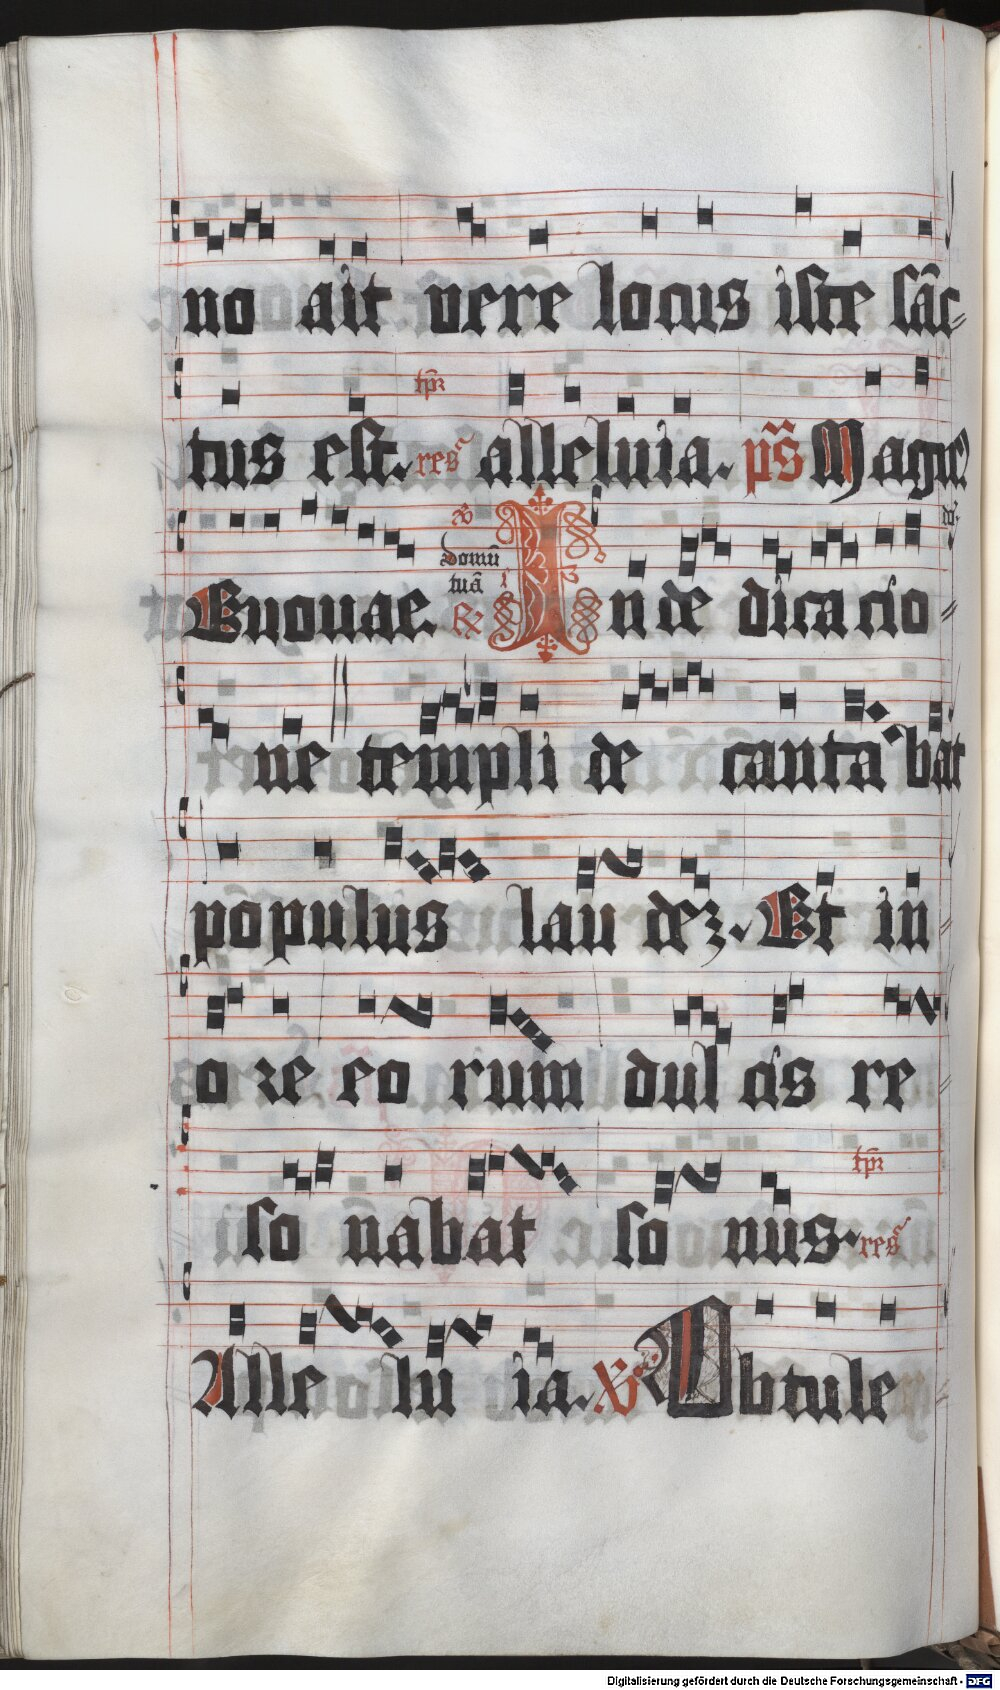 no ait vere locus iste sāc
tpr
tus est. res alleluia. ps Magnī
Euouae. domū tuā In de dica cio
ne templi de cantabat
populus laudez. Et in
o re eo rum dul cis re
tpr
so nabat so nus. res
Alle lu ia. Obtule
Digitalisierung gefördert durch die Deutsche Forschungsgemeinschaft - DFG